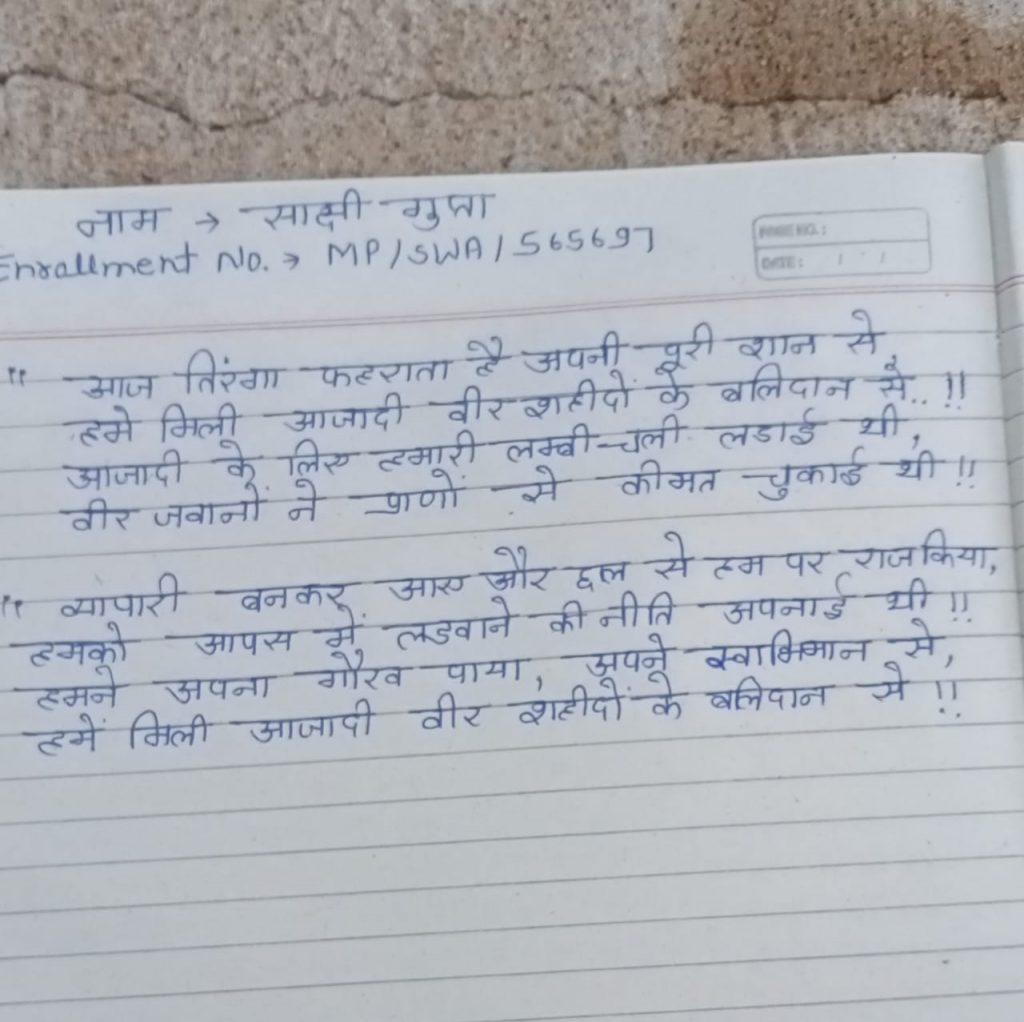 नाम → साक्षी गुप्ता
Enrallment No. → MP/SWA/565697
PAGE NO.:
DATE: / /
" आज तिरंगा फहराता है अपनी पूरी शान से,
हमे मिली आजादी वीर शहीदों के बलिदान से..!!
आजादी के लिए हमारी लम्बी चली लडाई थी,
वीर जवानों ने प्राणों से कीमत चुकाई थी !!
" व्यापारी बनकर आए और छल से हम पर राज किया,
हमको आपस में लडवाने की नीति अपनाई थी !!
हमने अपना गौरव पाया, अपने स्वाभिमान से,
हमें मिली आजादी वीर शहीदों के बलिदान से !!